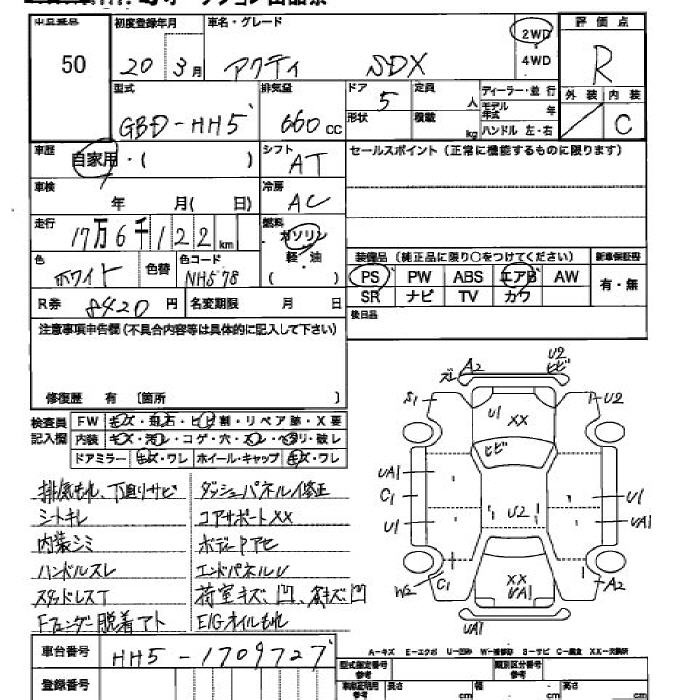 50
初度登録年月
20 3月
車名・グレード
アクティ SDX
2WD
4WD
評価点
R
外装 内装
C
型式
GBD-HH5
排気量
660cc
ドア 5
形状
定員 人
積載 kg
ディーラー・並行
モデル年式 年
ハンドル 左・右
車歴
自家用・( )
シフト
AT
セールスポイント (正常に機能するものに限ります)
車検
年 月( 日)
冷房
AC
走行
17万6千122km
燃料
ガソリン
軽・油
( )
色
ホワイト
色替
色コード
NH578
装備品 (純正品に限り○をつけてください)
新車保証書
PS PW ABS エアB AW
SR ナビ TV カワ
有・無
R券 8420円
名変期限 月 日
後日品
注意事項申告欄(不具合内容等は具体的に記入して下さい)
修復歴 有 〔箇所 〕
検査員記入欄
FW キズ・飛石・ヒビ割・リペア跡・X要
内装 キズ・汚レ・コゲ・穴・スレ・ヘタリ・破レ
ドアミラー キズ・ワレ ホイール・キャップ キズ・ワレ
排気もれ、下回りサビ
シートキレ
内装シミ
ハンドルスレ
スタッドレスT
Fフェンダー脱着アト
ダッシュパネル修正
コアサポートXX
ボデーPアセ
エンドパネルU
荷室キズ、凹、
E/Gオイルもれ
ズレ A2
U2
ヒビ
S1
U2
U1
XX
ヒビ
UA1
C1
U1
U2
U1
UA1
W2
C1
XX
UA1
A2
UA1
A-キズ E-エクボ U-凹み W-補修跡 S-サビ C-腐食 XX-交換済
車台番号
HH5-1709727
登録番号
型式指定番号
類別区分番号
長さ cm
幅 cm
高さ cm